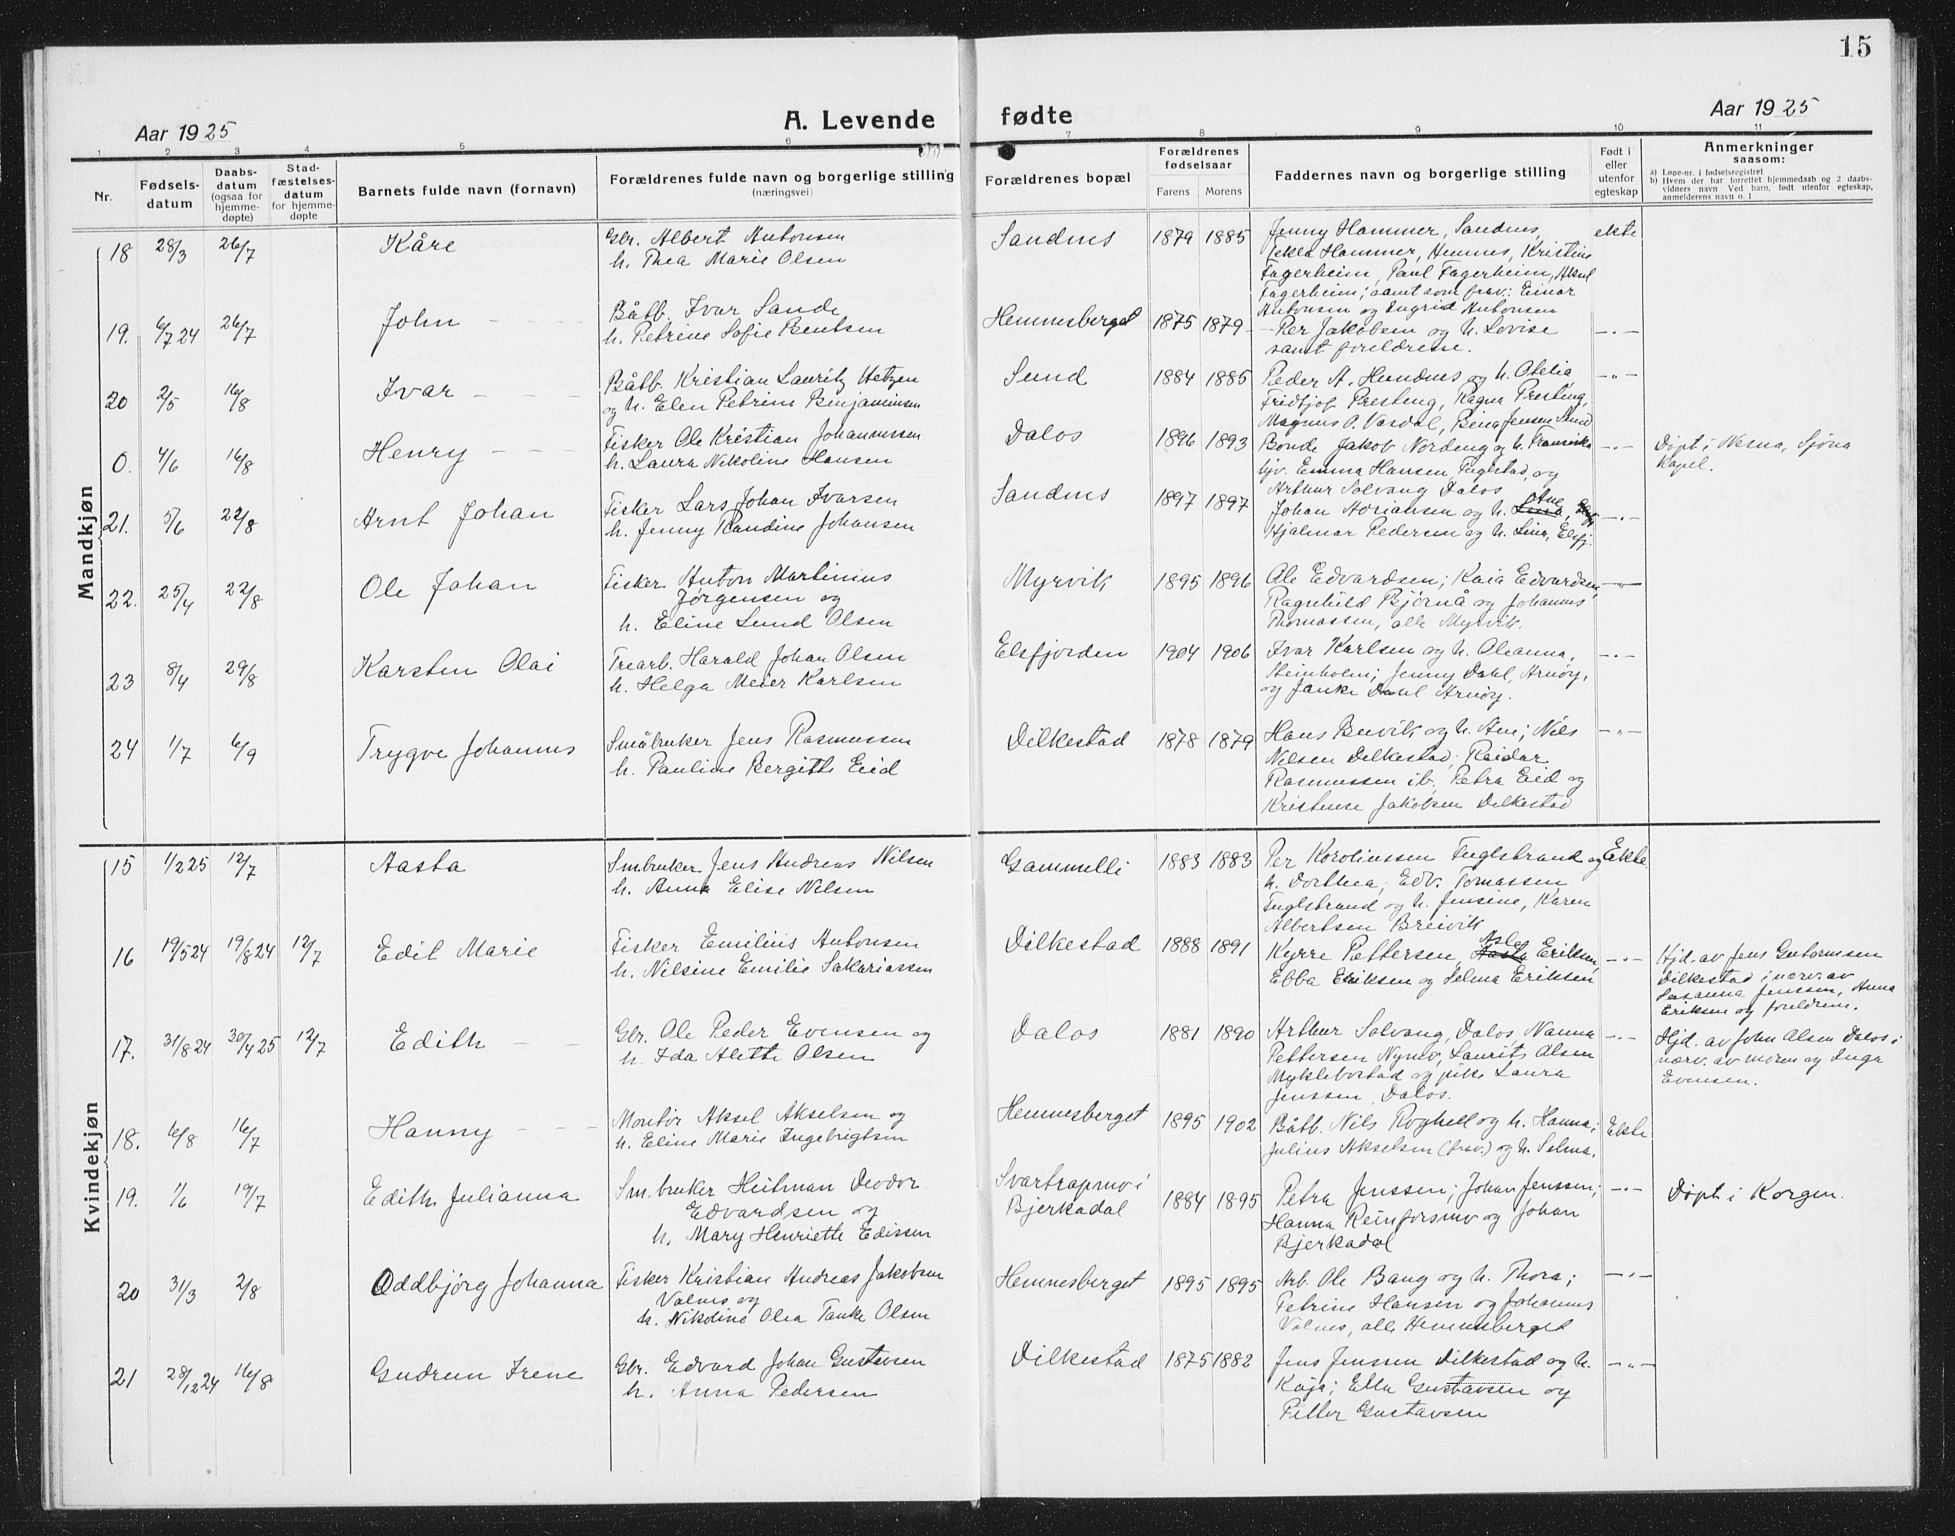 15
Aar 1925
A. Levende
fødte
Aar 1925
1 2 3 4 5 6 7 8 9 10 11
Nr.
Fødsels-
datum
Daabs-
datum
(ogsaa for
hjemme-
døpte)
Stad-
fæstelses-
datum
for hjemme-
døpte
Barnets fulde navn (fornavn)
Forældrenes fulde navn og borgerlige stilling
(næringsvei)
Forældrenes bopæl
Forældrenes
fødselsaar
Farens Morens
Faddernes navn og borgerlige stilling
Født i
eller
utenfor
egteskap
Anmerkninger
saasom:
a) Løpe-nr. i fødselsregistret
b) Hvem der har forrettet hjemmedaab og 2 daabs-
vidners navn Ved barn, født utenfor egteskap,
anmelderens navn o. l
Mandkjøn
18 28/3 26/7 Kåre
Gbr. Albert Antonsen
h. Thea Marie Olsen
Sandnes 1879 1885
Jenny Hammer, Sandnes,
Tekla Hammer, Hemnes, Kristine
Fagerheim, Paul Fagerheim, Aksel
Fagerheim; samt som frav: Einar
Antonsen og Ingrid Antonsen
ekte
19. 6/7 24 26/7 John - - -
Båtb. Ivar Sande
h. Petrine Sofie Bentsen
Hemnesberget 1875 1879
- Per Jakobsen og h. Lovise
samt foreldrene.
-"-
20 2/5 16/8 Ivar - - -
Båtb. Kristian Lauritz
og h. Elen Petrine Benjaminsen
Sund 1884 1885
Peder A. Hemnes og h. Otelia
Fridtjof Presteng, Ragna Presteng,
Magnus O. Vasdal, Bina Jensen Sund
-"-
0. 4/6 16/8 Henry - - -
Fisker Ole Kristian Johannessen
h. Laura Nikoline Hansen
Dalos 1896 1893
Bonde Jakob Nordeng og h. Fransiska
hjv. Emma Hansen, Fuglstad, og
Arthur Solvang Dalos
-"-
Døpt i Nesna, Sjona
Kapel.
21. 5/6 22/8 Arnt Johan
Fisker Lars Johan Ivarsen
h. Jenny Randine Johansen
Sandnes 1897 1897
Ane
Johan Adriansen og h. Lina, Elsfj.
Hjalmar Pedersen og h. Lina, Elsfj.
-"-
22. 25/4 22/8 Ole Johan
Fisker Anton Martinius
Jørgensen og
h. Eline Lund Olsen
Myrvik 1895 1896
Ole Edvardsen; Kaia Edvardsen
Ragnhild Bjørnå og Johannes
Thomassen, alle Myrvik.
-"-
23 8/4 29/8 Karsten Olai
Trearb. Harald Johan Olsen
h. Helga Meier Karlsen
Elsfjorden 1904 1906
Ivar Karlsen og h. Oleanna,
Steinholm; Jenny Dahl, Arnøy,
og Janke Dahl Arnøy.
-"-
24 1/7 6/9 Trygve Johannes
Småbruker Jens Rasmussen
h. Pauline Bergitte Eid
Dilkestad 1878 1879
Hans Buvik og h. Ane; Nils
Nilsen Dilkestad; Reidar
Rasmussen ib. Petra Eid og
Kristense Jakobsen Dilkestad
-"-
Kvindekjøn
15 1/2 25 12/7 Aasta
Smbruker Jens Andreas Nilsen
h. Anna Elise Nilsen
Gammelli 1883 1883
Per Karoliussen Fuglstrand og
h. Dorthea; Edv. Tomassen
Fuglstrand og h. Jensine, Karen
Albertsen Breivik
Ekte
16 19/5 24 19/8 24 12/7 Edit Marie
Fisker Emilius Antonsen
h. Nilsine Emilie Sakariassen
Dilkestad 1888 1891
Asle
Kyrre Pettersen, Aasta Eriksen,
Ebba Eriksen og Selma Eriksen
-"-
Hjd. av Jens Guttormsen
Dilkestad i nærv. av
Susanna Jenssen, Anna
Eriksen og foreldrene.
17. 31/8 24 30/4 25 12/7 Edith - -
Gbr. Ole Peder Evensen og
h. Ida Alette Olsen
Dalos 1881 1890
Arthur Solvang, Dalos Nanna
Pettersen Nymo, Laurits Olsen
Myklebostad og pike Laura
Jenssen, Dalos.
-"-
Hjd. av John Olsen Dalos i
nærv. av moren og Inga
Evensen.
18. 6/8 16/7 Hanny - - -
Montør Aksel Akselsen og
h. Eline Marie Ingebrigtsen
Hemnesberget 1895 1902
Båtb. Nils Roghell og h. Hanna;
Julius Akselsen (frav.) og h. Selma.
Ekte
19. 1/6 19/7 Edith Julianna
Sm.bruker Heitman Deodor
Edvardsen og
h. Mary Henriette Edissen
Svartrapmo i
Bjerkadal 1884 1895
Petra Jenssen; Johan Jenssen;
Hanna Reinforsmo og Johan
Bjerkadal
-"-
Døpt i Korgen.
20 31/3 2/8 Oddbjørg Johanna
Fisker Kristian Andreas Jakobsen
Valnes og
h. Nikoline Olea Tanke Olsen
Hemnesberget 1895 1895
Arb. Ole Bang og h. Thora;
Petrine Hansen og Johannes
Valnes, alle Hemnesberget
-"-
21 28/12 24 16/8 Gudrun Irene
Gbr. Edvard Johan Gustavsen
h. Anna Pedersen
Dilkestad 1875 1882
Jens Jenssen Dilkestad og h.
Kaja; Ella Gustavsen og
Petter Gustavsen
-"-